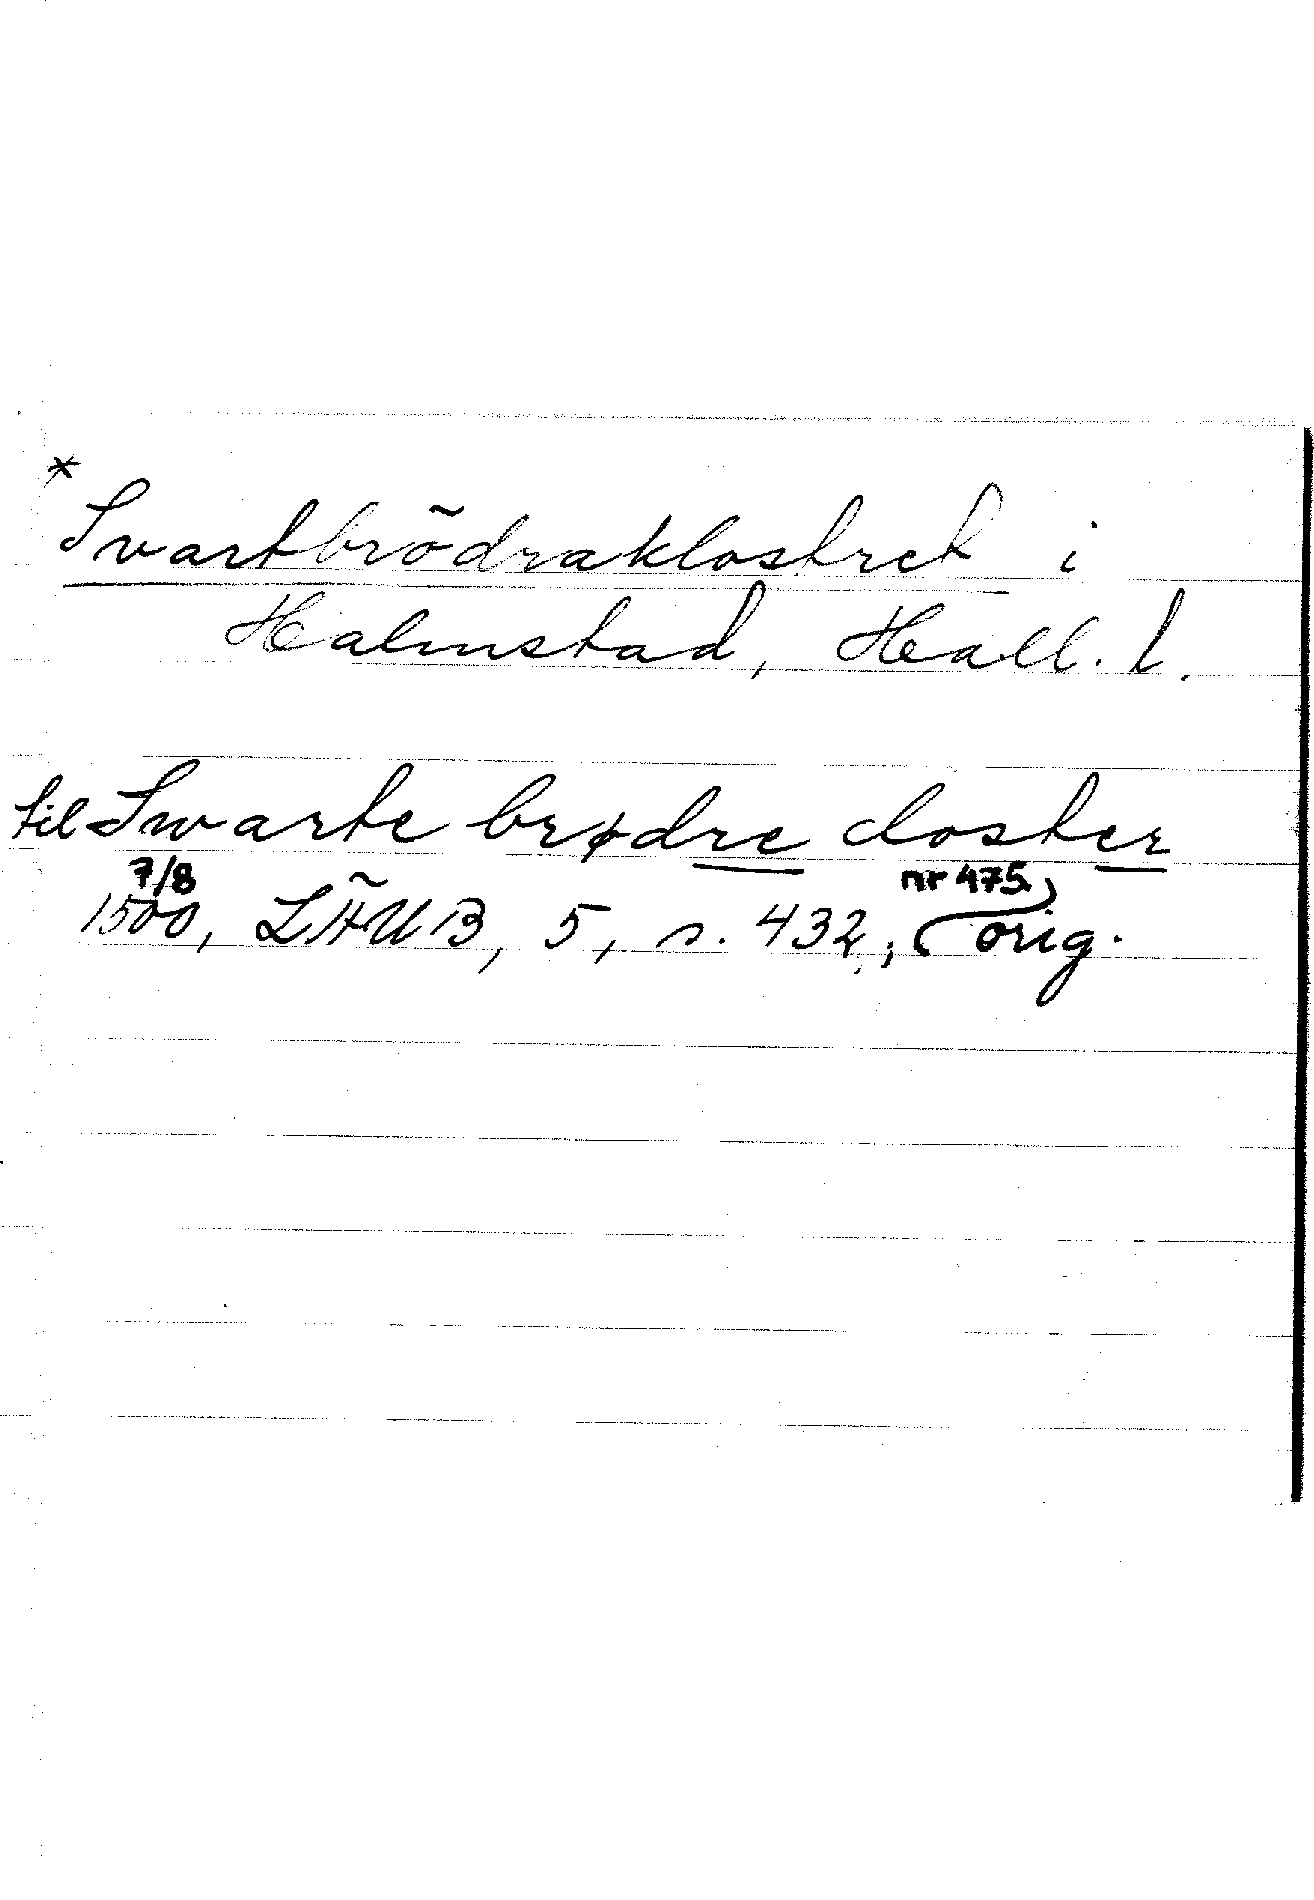 * Svartbrödraklostret i
Halmstad, Hall. l.
til Swarte brødre closter
7/8 nr 475
1500, LÄUB, 5, s. 432; orig.